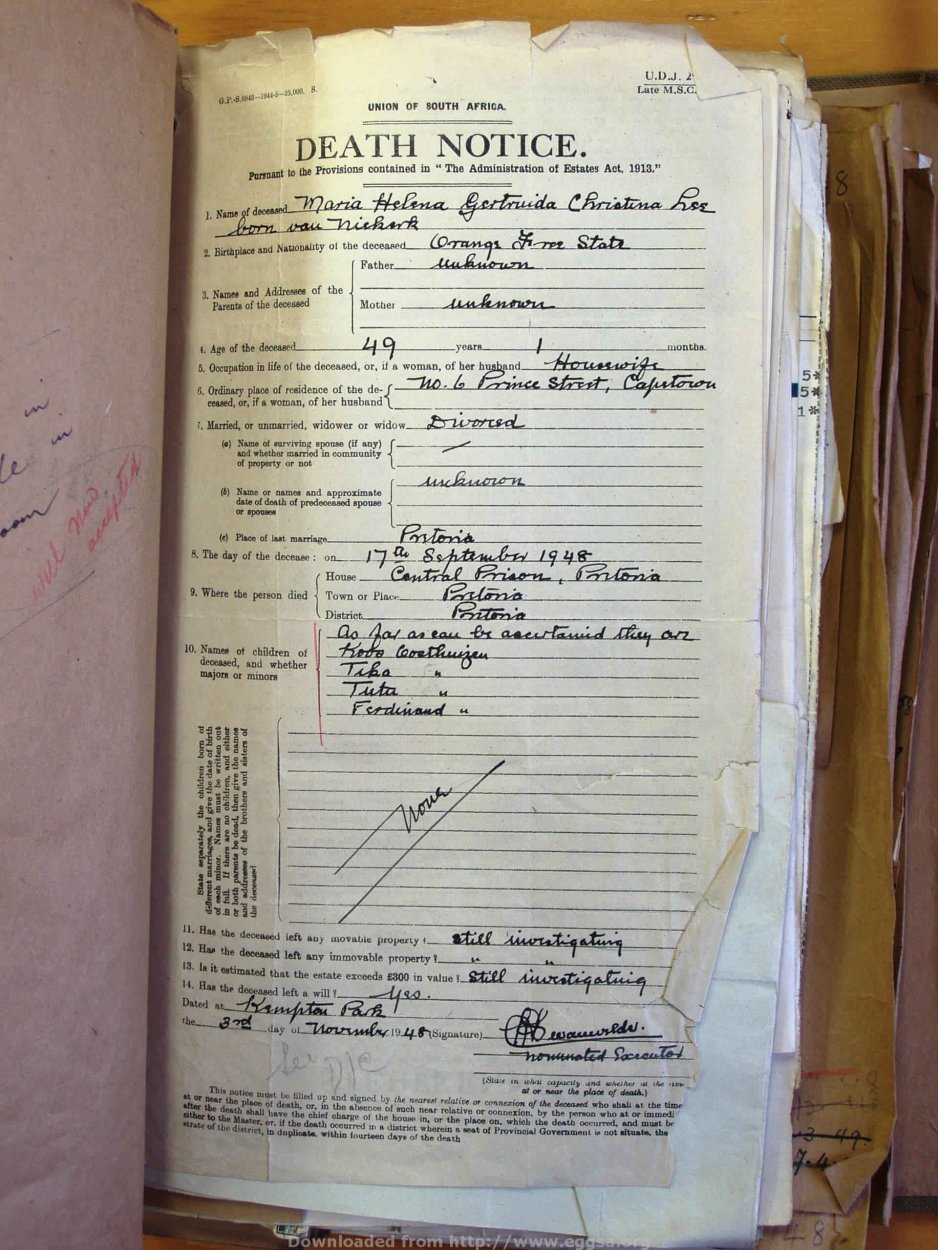 G.P.-S.6848—1944-5—25,000. S.
U.D.J. 2
Late M.S.C.
UNION OF SOUTH AFRICA.
DEATH NOTICE.
Pursuant to the Provisions contained in “ The Administration of Estates Act, 1913.”
1. Name of deceased Maria Helena Gertruida Christina Lee
born van Niekerk
2. Birthplace and Nationality of the deceased Orange Free State
3. Names and Addresses of the Parents of the deceased
Father unknown
Mother unknown
4. Age of the deceased 49 years 1 months.
5. Occupation in life of the deceased, or, if a woman, of her husband Housewife
6. Ordinary place of residence of the de- No. 6 Prince Street, Capetown
ceased, or, if a woman, of her husband
7. Married, or unmarried, widower or widow Divorced
(a) Name of surviving spouse (if any)
and whether married in community
of property or not
unknown
(b) Name or names and approximate
date of death of predeceased spouse
or spouses
(c) Place of last marriage Pretoria
8. The day of the decease : on 17th September 1948
House Central Prison, Pretoria
9. Where the person died Town or Place Pretoria
District Pretoria
As far as can be ascertained they are
10. Names of children of Koos Oosthuizen
deceased, and whether Tika "
majors or minors Tuta "
Ferdinand "
State separately the children born of
different marriages, and give the date of birth
of each minor. Names must be written out
in full. If there are no children, and either
or both parents be dead, then give the names
and addresses of the brothers and sisters of
the deceased
None
11. Has the deceased left any movable property? still investigating
12. Has the deceased left any immovable property? " "
13. Is it estimated that the estate exceeds £300 in value? Still investigating
14. Has the deceased left a will? Yes.
Dated at Kempton Park
the 3rd day of November 1948 (Signature)
nominated Executor
(State in what capacity and whether at the
at or near the place of death.)
This notice must be filled up and signed by the nearest relative or connexion of the deceased who shall at the time
at or near the place of death, or, in the absence of such near relative or connexion, by the person who at or immedi
after the death shall have the chief charge of the house in, or the place on, which the death occurred, and must be
either to the Master, or, if the death occurred in a district wherein a seat of Provincial Government is not situate, the
strate of the district, in duplicate, within fourteen days of the death
will now
accepted
Downloaded from http://www.eggsa.org